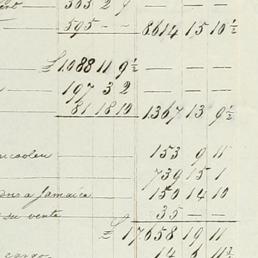 303 2 9
595 — — 8614 15 10½
£1088 11 9½ — — —
197 3 2 — — —
81 18 10 1367 13 9½
153 9 11
739 15 1
Jamaica 150 14 10
su vente 35 — —
£ 17658 19 11
cargo 14 6 11½